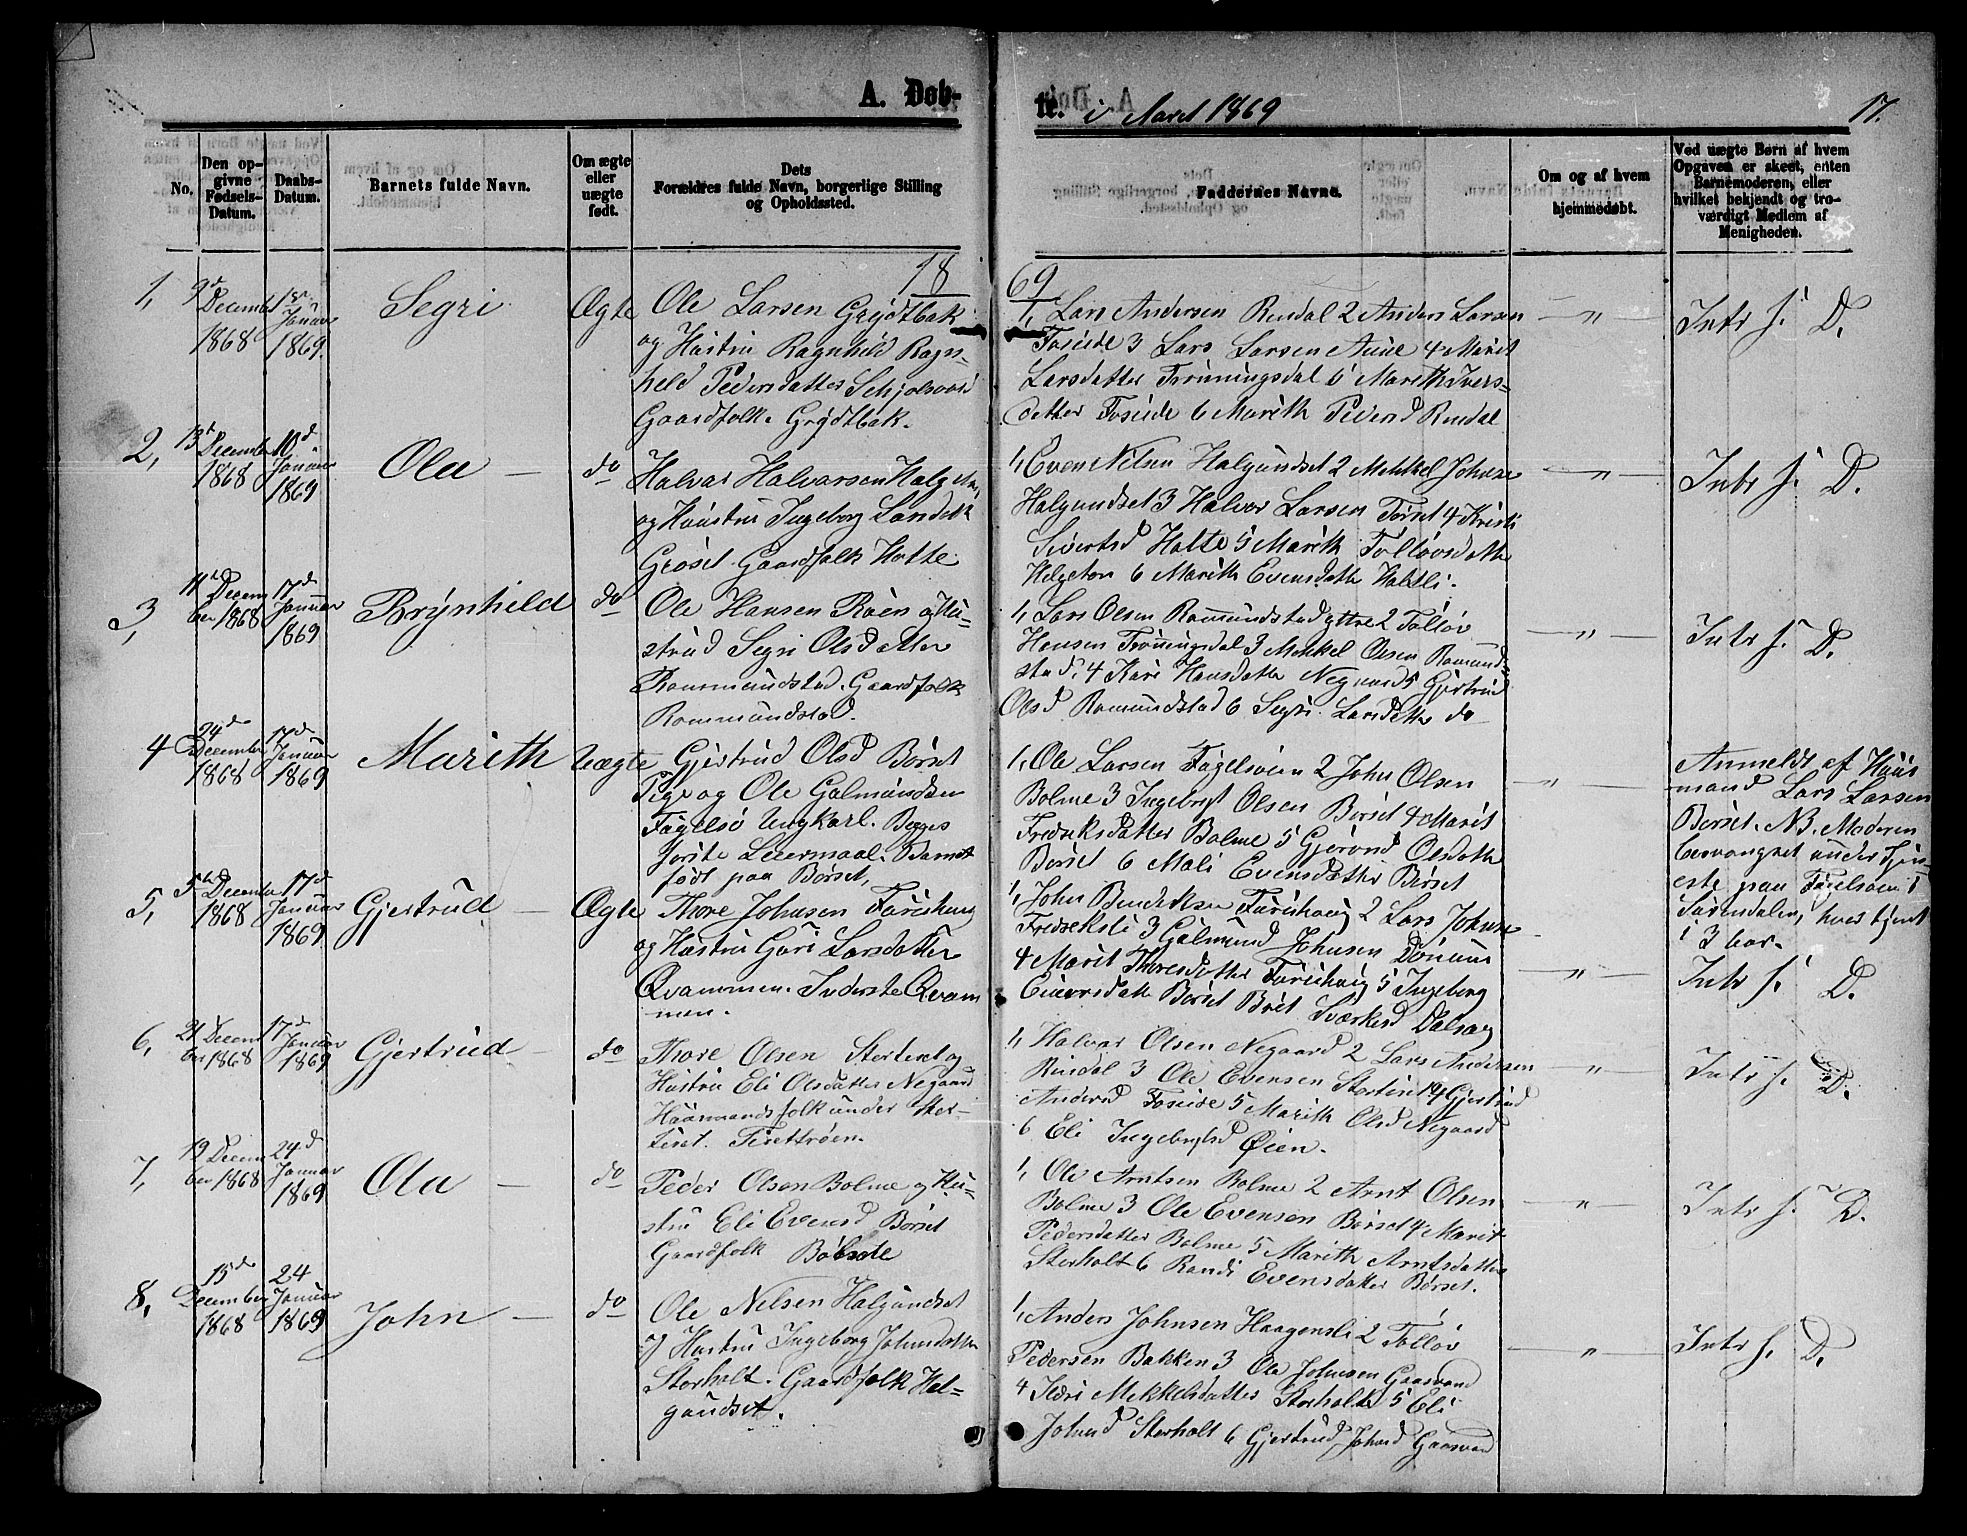 A. Døb-
te. i Aaret 1869
17.
No.
Den op-
givne
Fødsels-
Datum.
Daabs-
Datum.
Barnets fulde Navn.
Om ægte
eller
uægte
født.
Dets
Forældres fulde Navn, borgerlige Stilling
og Opholdssted.
Faddernes Navne.
Om og af hvem
hjemmedøbt.
Ved uægte Børn af hvem
Opgaven er skeet, enten
Barnemoderen, eller
hvilket bekjendt og tro-
værdigt Medlem af
Menigheden.
18
69
1,
9d
Decembr
1868
Januar
1869.
Segri
Ægte
Ole Larsen Grydtbak
og Hustru Ragnhild Ragn-
held Pedersdatter
Gaardfolk. Grydtbak.
1, Lars Andersen Rindal 2 Anders Larsen
Foseide 3 Lars Larsen Aune 4 Marit
Larsdatter Trønningsdal 5 Marith Ivers-
datter Foseide 6 Marith Pedersd Rindal
— " —
Intr s. D.
2,
13d
December
1868
10d
Januar
1869
Ola —
do
Halvar Halvarsen
og Hustru Ingeborg
Grøset Gaardfolk Holte
1, Even Nilsen Halgundset 2 Mekkel Johnsen
Halgundset 3 Halvor Larsen Tørset 4
Sivertsd Holte 5 Marith Følløvsdatter
Helgeton 6 Marith Evensdatter Holtli.
— " —
Intr s. D.
3,
11te Decem
ber 1868
17d
Januar
1869
Brynhild
do
Ole Hansen Røen og Hu-
strud Segri Olsdatter
Rommundstad. Gaardfolk
Rommundstad.
1, Lars Olsen Romundstad yttre 2 Følløv
Hansen Trønningsdal 3 Mekkel Olsen Romund-
stad, 4 Kari Hansdatter Negaard 5 Gjertrud
Olsd Romundstad 6 Segri Larsdatter do
— " —
Intr s. D.
4
24d
December
1868
17d
Januar
1869
Marith
Uægte
Gjertrud Olsd Børset
Pige og Ole Galmundsen
Fagelsø Ungkarl. Begges
første Leiermaal. Barnet
født paa Børset,
1, Ole Larsen Fagelsøien 2 John Olsen
Bolme 3 Ingebrygt Olsen Børset 4 Marit
Fredriksdatter Bolme 5 Gjørond Olsdatter
Børset 6 Mali Evensdatter Børset
— " —
Anmeldt af Huus
mand Lars Larsen
Børset. NB. Moderen
besvangret under Tjen-
este paa Fagelsøen i
Surendalen, hvor tjent
i 3 Aar.
5,
5te Decembr
1868
17d
Januar
1869
Gjertrud —
Ægte
Thore Johnsen Fariihaug
og Hustru Guri Larsdatter
Qvammen. Inderste Qvam
men.
1, John Bendiksen Fariihaug 2 Lars Johnsen
Fredseksli 3 Galmund Johnsen
4 Marit Thoresdatter Fariihaug 5 Ingeborg
Einersdatter Børset Brit Sværkesd Dalsaeg
— " —
Intr s. D.
6,
21 Decem
ber 1868
17d
Januar
1869
Gjertrud —
do
Thore Olsen Storteset og
Hustru Eli Olsdatter Negaard
Huusmandsfolk under Stor-
teset.
1, Halvar Olsen Negaard 2 Lars Andersen
Rindal 3 Ole Evensen 4 Gjertrud
Andersd Foseide 5 Marith Olsd Negaard
6 Eli Ingebrygtsd Øien.
— " —
Intr s. D.
7,
19 Decem
ber 1868
24d
Januar
1869
Ola —
do
Peder Olsen Bolme og Hu-
stru Eli Evensd Børset
Gaardfolk
1, Ole Arntsen Bolme 2 Arnt Olsen
Bolme 3 Ole Evensen Børset 4 Marit
Pedersdatter Bolme 5 Marith Arntsdatter
Storholt 6 Randi Evensdatter Børset.
— " —
Intr s. D.
8,
15d
December
1868
24
Januar
1869
John —
do
Ole Nelsen Halgundset
og Hustru Ingeborg Johnsdatter
Storholt. Gaardfolk Hal-
gundset.
1, Anders Johnsen Haagensli 2 Følløv
Pedersen Bakken 3 Ole Johnsen Gaasvand
4 Mekkelsdatter Storholt 5 Eli
Johnsd Storholt 6 Gjertrud Johnsd Gaasvand
— " —
Intr s. D.